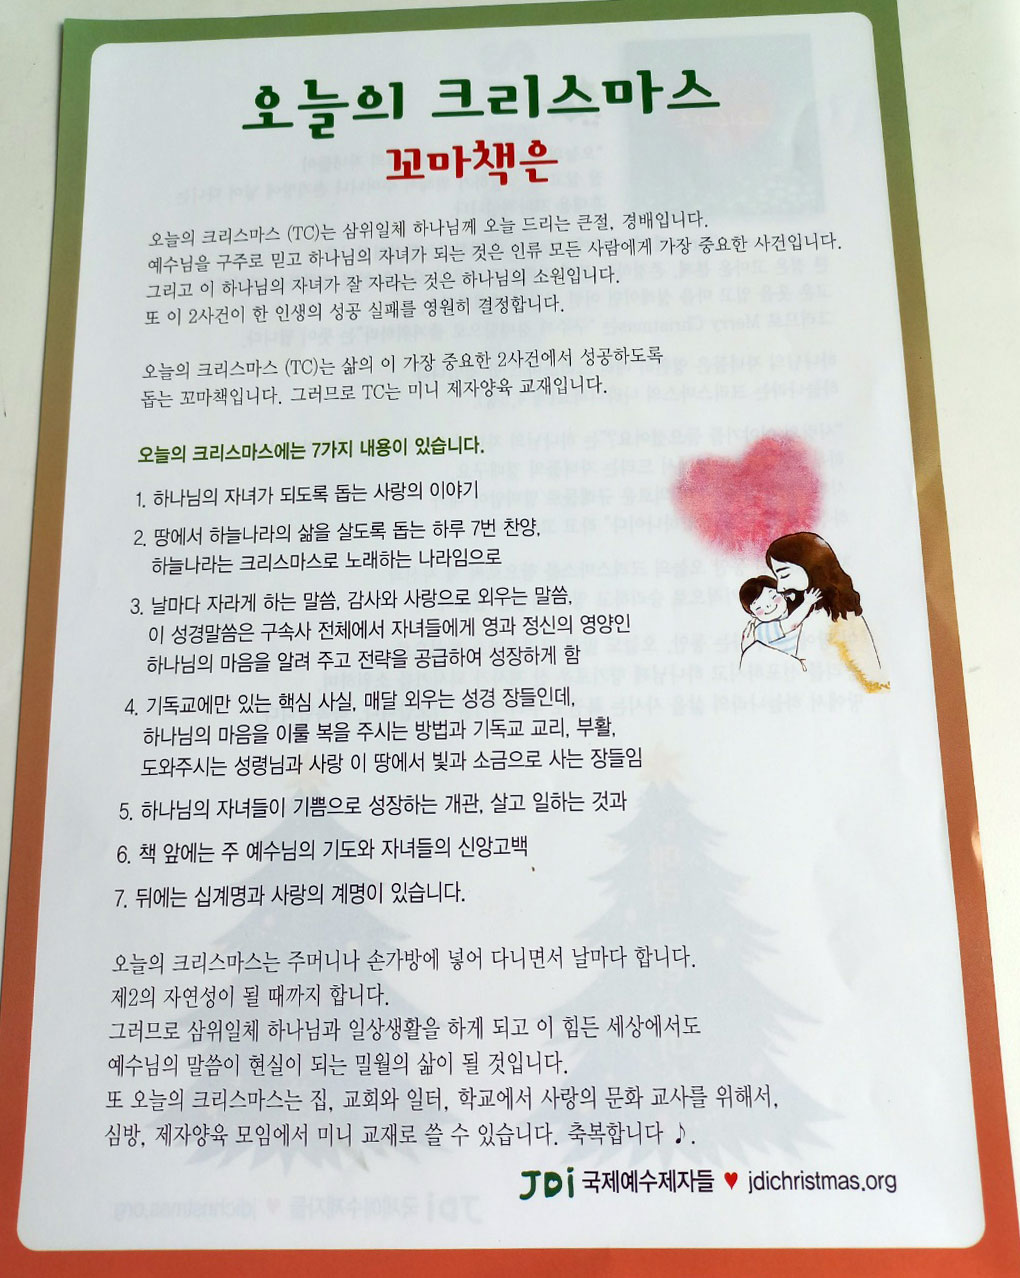 오늘의 크리스마스
꼬마책은
오늘의 크리스마스 (TC)는 삼위일체 하나님께 오늘 드리는 큰절, 경배입니다.
예수님을 구주로 믿고 하나님의 자녀가 되는 것은 인류 모든 사람에게 가장 중요한 사건입니다.
그리고 이 하나님의 자녀가 잘 자라는 것은 하나님의 소원입니다.
또 이 2사건이 한 인생의 성공 실패를 영원히 결정합니다.
오늘의 크리스마스 (TC)는 삶의 이 가장 중요한 2사건에서 성공하도록
돕는 꼬마책입니다. 그러므로 TC는 미니 제자양육 교재입니다.
오늘의 크리스마스에는 7가지 내용이 있습니다.
1. 하나님의 자녀가 되도록 돕는 사랑의 이야기
2. 땅에서 하늘나라의 삶을 살도록 돕는 하루 7번 찬양,
하늘나라는 크리스마스로 노래하는 나라임으로
3. 날마다 자라게 하는 말씀, 감사와 사랑으로 외우는 말씀,
이 성경말씀은 구속사 전체에서 자녀들에게 영과 정신의 영양인
하나님의 마음을 알려 주고 전략을 공급하여 성장하게 함
4. 기독교에만 있는 핵심 사실, 매달 외우는 성경 장들인데,
하나님의 마음을 이룰 복을 주시는 방법과 기독교 교리, 부활,
도와주시는 성령님과 사랑 이 땅에서 빛과 소금으로 사는 장들임
5. 하나님의 자녀들이 기쁨으로 성장하는 개관, 살고 일하는 것과
6. 책 앞에는 주 예수님의 기도와 자녀들의 신앙고백
7. 뒤에는 십계명과 사랑의 계명이 있습니다.
오늘의 크리스마스는 주머니나 손가방에 넣어 다니면서 날마다 합니다.
제2의 자연성이 될 때까지 합니다.
그러므로 삼위일체 하나님과 일상생활을 하게 되고 이 힘든 세상에서도
예수님의 말씀이 현실이 되는 밀월의 삶이 될 것입니다.
또 오늘의 크리스마스는 집, 교회와 일터, 학교에서 사랑의 문화 교사를 위해서,
심방, 제자양육 모임에서 미니 교재로 쓸 수 있습니다. 축복합니다 ♪.
JDi 국제예수제자들 ♥ jdichristmas.org